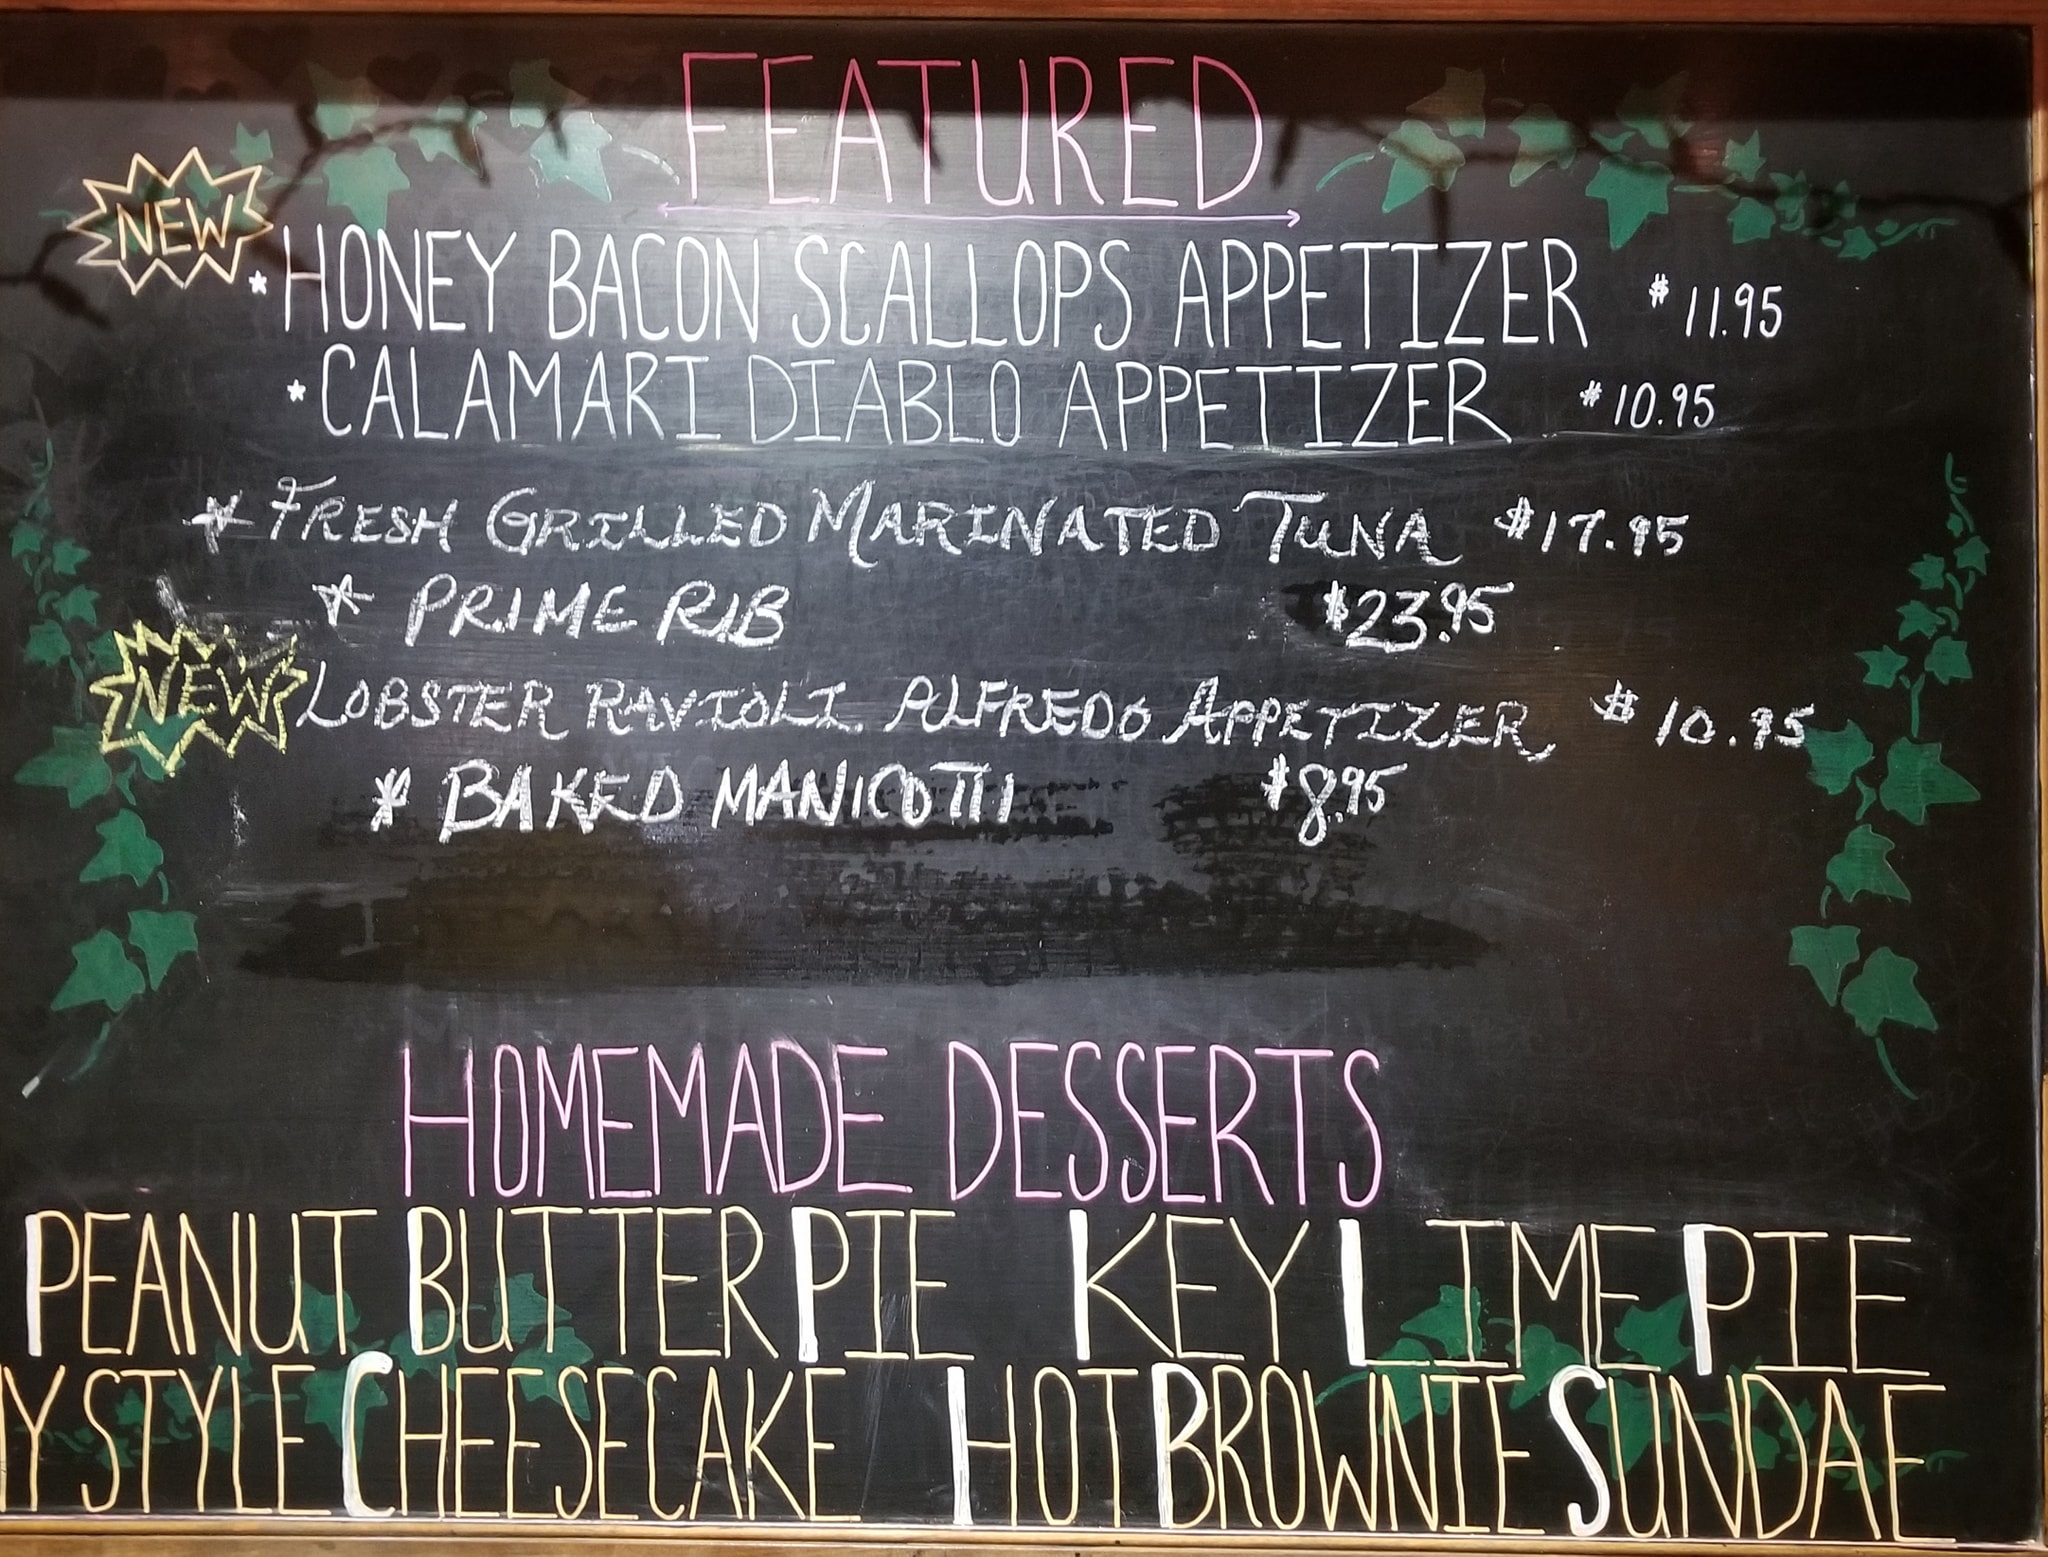 FEATURED
NEW
* HONEY BACON SCALLOPS APPETIZER $11.95
* CALAMARI DIABLO APPETIZER $10.95
* FRESH GRILLED MARINATED TUNA $17.95
* PRIME RIB $23.95
NEW LOBSTER RAVIOLI ALFREDO APPETIZER $10.95
* BAKED MANICOTTI $8.95
HOMEMADE DESSERTS
PEANUT BUTTER PIE KEY LIME PIE
NY STYLE CHEESECAKE HOT BROWNIE SUNDAE